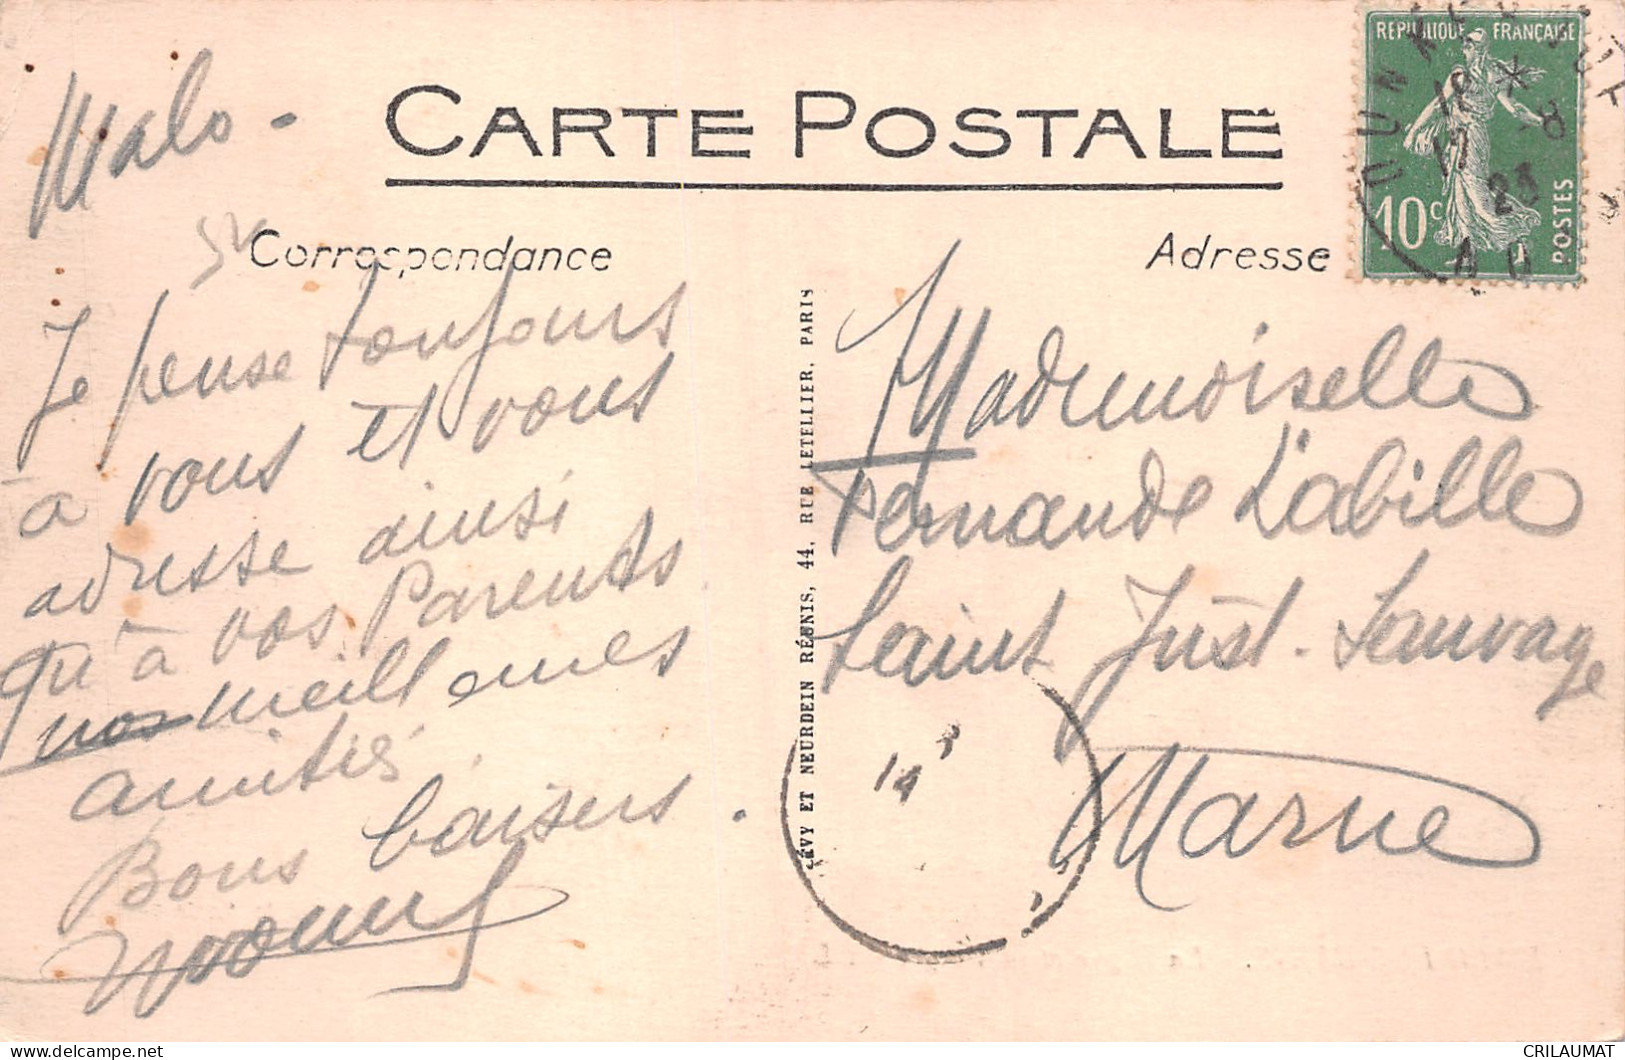 CARTE POSTALE
Malo -
Correspondance
Je pense toujours
à vous et vous
adresse ainsi
qu'à vos Parents
nos meilleures
amitiés
Bons baisers.
Adresse
Mademoiselle
Fernande Labille
Saint Just-Sauvage
Marne
LÉVY ET NEURDEIN RÉUNIS, 44, RUE LETELLIER, PARIS
RÉPUBLIQUE FRANÇAISE
10c
POSTES
DUNKERQUE
18 *
12 - 8
23
14 8
CRILAUMAT